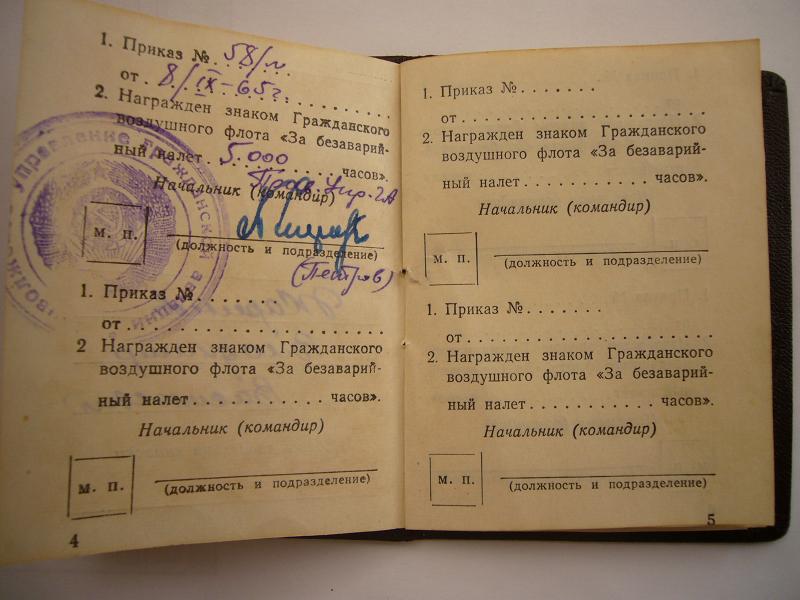 1. Приказ № 58/л.
от 8/IX-65г.
2. Награжден знаком Гражданского
воздушного флота «За безаварий-
ный налет 5.000 часов».
Начальник (командир)
м. п.
(должность и подразделение)
(Петров)
1. Приказ № . . . . . . .
от . . . . . . . . . . . . . . . . . . . .
2 Награжден знаком Гражданского
воздушного флота «За безаварий-
ный налет . . . . . . . . . . . часов».
Начальник (командир)
м. п.
(должность и подразделение)
4
1. Приказ № . . . . . . .
от . . . . . . . . . . . . . . . . . . . .
2. Награжден знаком Гражданского
воздушного флота «За безаварий-
ный налет . . . . . . . . . . . часов».
Начальник (командир)
м. п.
(должность и подразделение)
1. Приказ № . . . . . . .
от . . . . . . . . . . . . . . . . . . . .
2. Награжден знаком Гражданского
воздушного флота «За безаварий-
ный налет . . . . . . . . . . . часов».
Начальник (командир)
м. п.
(должность и подразделение)
5
управление гражданской